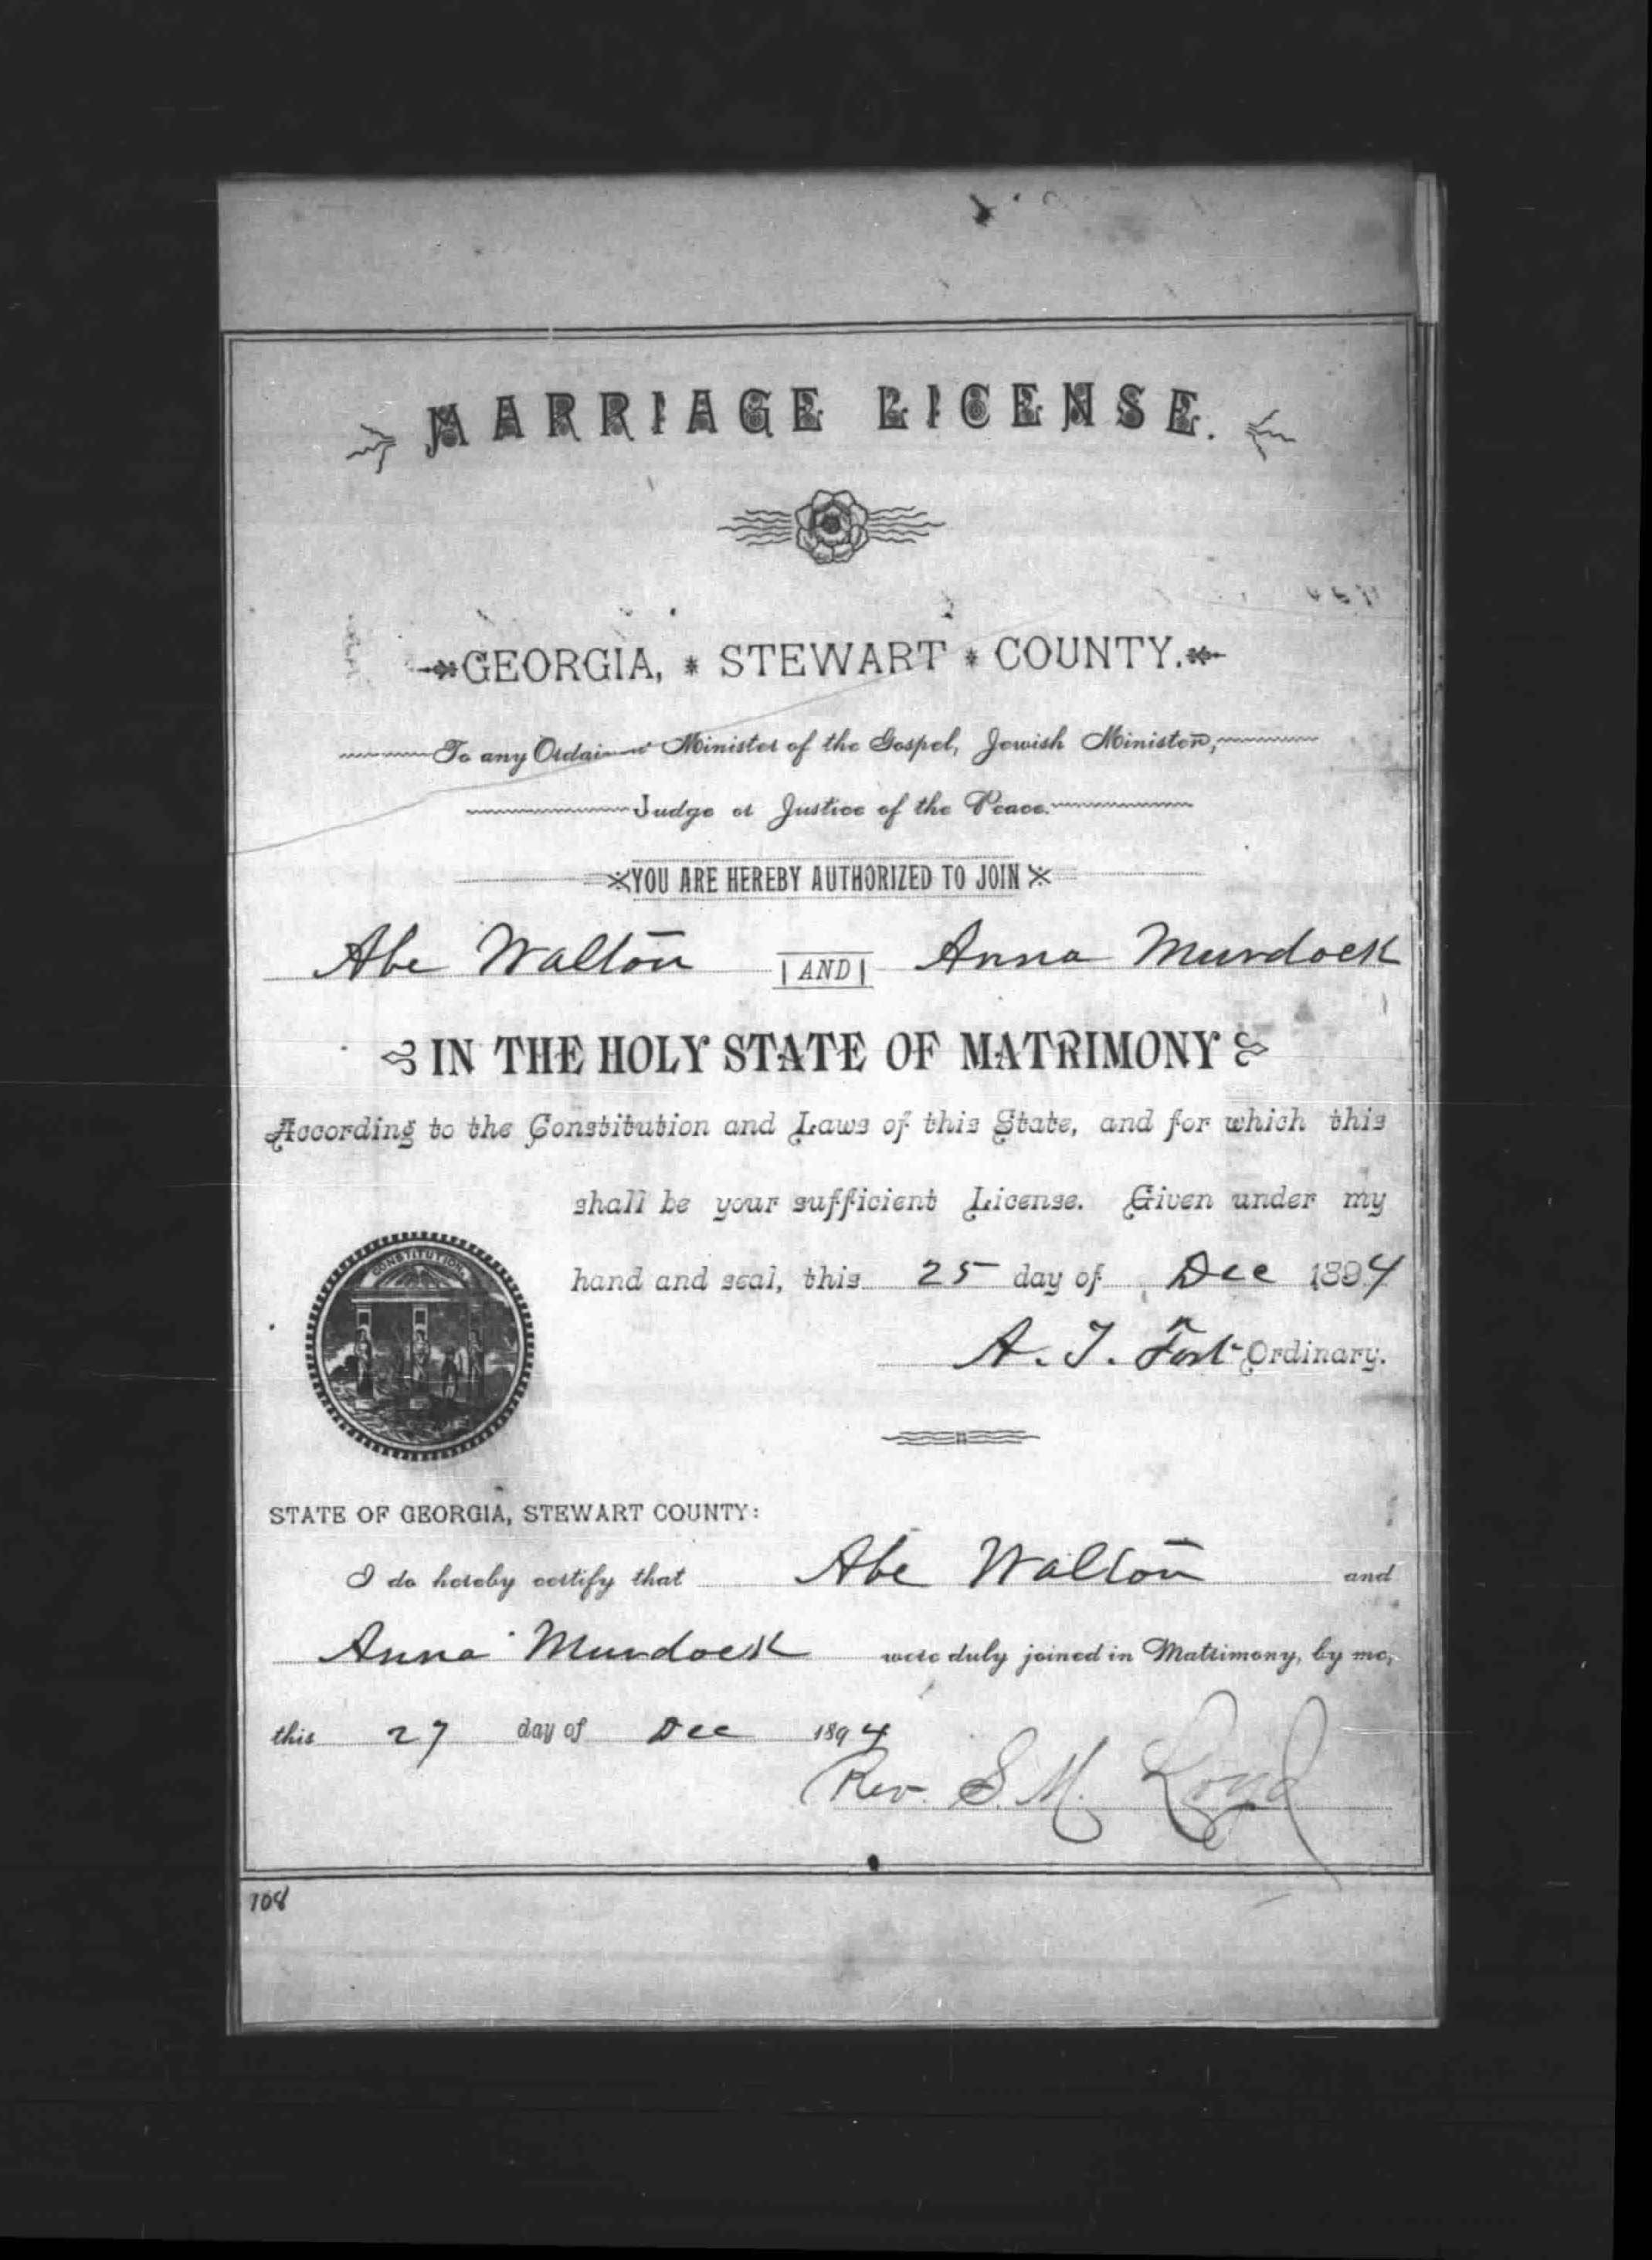 MARRIAGE LICENSE.
GEORGIA, * STEWART * COUNTY.
To any Ordained Minister of the Gospel, Jewish Minister,
Judge or Justice of the Peace.
YOU ARE HEREBY AUTHORIZED TO JOIN
Abe Walton AND Anna Murdock
IN THE HOLY STATE OF MATRIMONY
According to the Constitution and Laws of this State, and for which this
shall be your sufficient License. Given under my
CONSTITUTION
hand and seal, this 25 day of Dec 1894
A. T. Fort Ordinary.
STATE OF GEORGIA, STEWART COUNTY:
I do hereby certify that Abe Walton and
Anna Murdock were duly joined in Matrimony, by me,
this 27 day of Dec 1894
Rev. S. M. Loyd
108